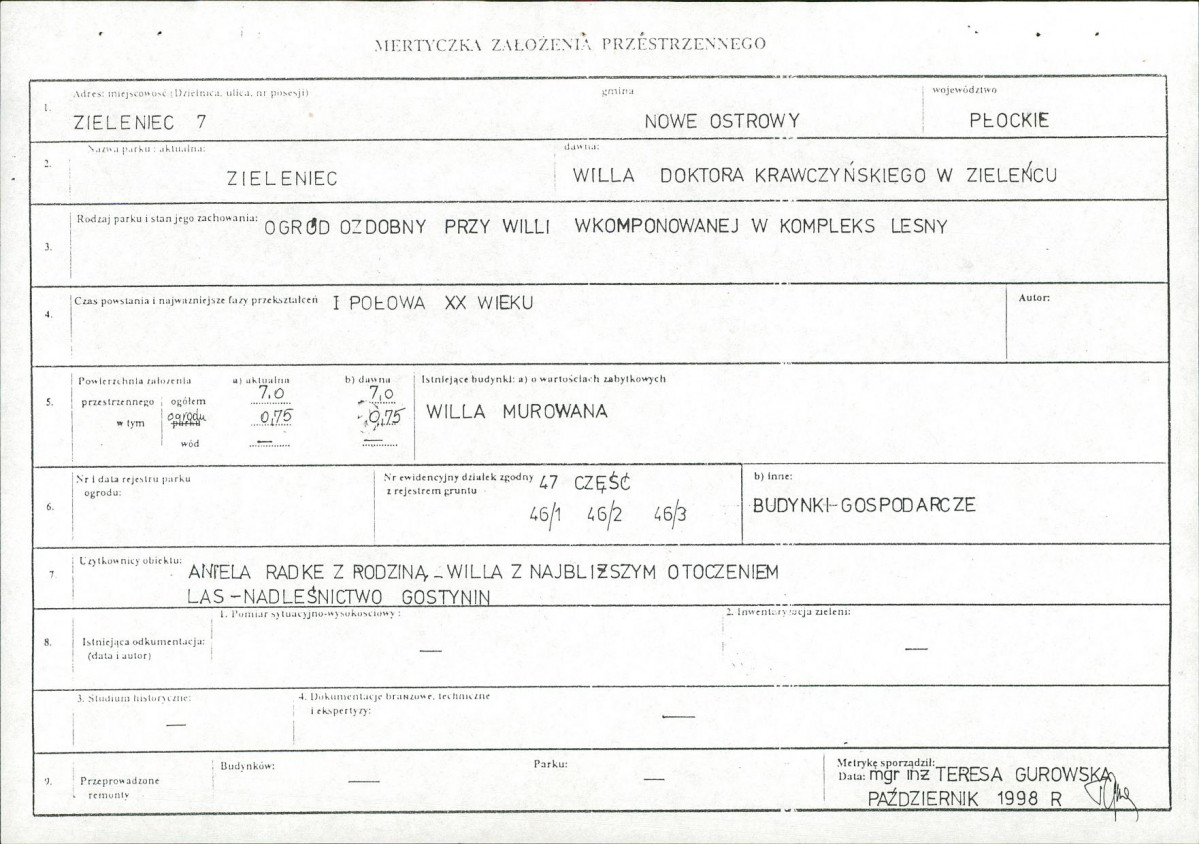 MERTYCZKA ZAŁOŻENIA PRZESTRZENNEGO
1. Adres: miejscowość (Dzielnica, ulica, nr posesji) gmina województwo
ZIELENIEC 7 NOWE OSTROWY PŁOCKIE
2. Nazwa parku : aktualna: dawna:
ZIELENIEC WILLA DOKTORA KRAWCZYŃSKIEGO W ZIELEŃCU
3. Rodzaj parku i stan jego zachowania: OGRÓD OZDOBNY PRZY WILLI WKOMPONOWANEJ W KOMPLEKS LESNY
4. Czas powstania i najważniejsze fazy przekształceń I POŁOWA XX WIEKU Autor:
5. Powierzchnia założenia a) aktualna b) dawna Istniejące budynki: a) o wartościach zabytkowych
przestrzennego ogółem 7.0 7,0
w tym ogrodu parku 0,75 0,75 WILLA MUROWANA
wód — —
6. Nr i data rejestru parku Nr ewidencyjny działek zgodny 47 CZĘŚĆ b) inne:
ogrodu: z rejestrem gruntu 46/1 46/2 46/3 BUDYNKI-GOSPODARCZE
7. Użytkownicy obiektu: ANIELA RADKE Z RODZINĄ - WILLA Z NAJBLIŻSZYM OTOCZENIEM
LAS - NADLEŚNICTWO GOSTYNIN
8. Istniejąca odkumentacja: 1. Pomiar sytuacyjno-wysokościowy : 2. Inwentaryzacja zieleni:
(data i autor) — —
3. Studium historyczne: 4. Dokumentacje branżowe, techniczne
i ekspertyzy:
— —
9. Przeprowadzone Budynków: Parku: Metrykę sporządził:
remonty — — Data: mgr inż TERESA GUROWSKA
PAŹDZIERNIK 1998 R